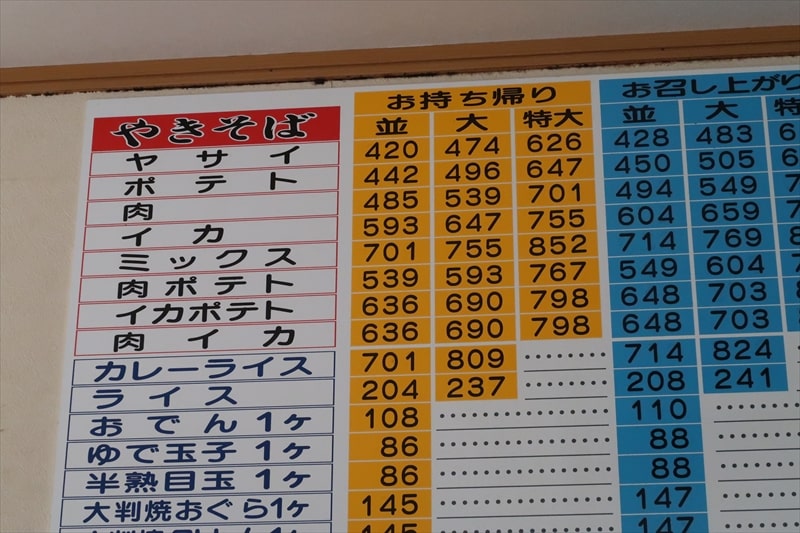 お持ち帰り お召し上がり
やきそば 並 大 特大 並 大
ヤサイ 420 474 626 428 483
ポテト 442 496 647 450 505
肉 485 539 701 494 549
イカ 593 647 755 604 659
ミックス 701 755 852 714 769
肉ポテト 539 593 767 549 604
イカポテト 636 690 798 648 703
肉イカ 636 690 798 648 703
カレーライス 701 809 714 824
ライス 204 237 208 241
おでん1ヶ 108 110
ゆで玉子1ヶ 86 88
半熟目玉1ヶ 86 88
大判焼おぐら1ヶ 145 147
大判焼 145 147